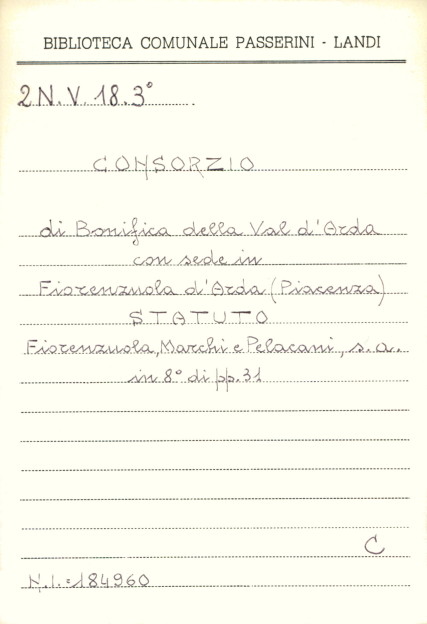 BIBLIOTECA COMUNALE PASSERINI - LANDI
2N.V.18.3°
CONSORZIO
di Bonifica della Val d'Arda
con sede in
Fiorenzuola d'Arda (Piacenza)
STATUTO
Fiorenzuola, Marchi e Pelacani, s.a.
in 8° di pp. 31
C
N.I.=184960